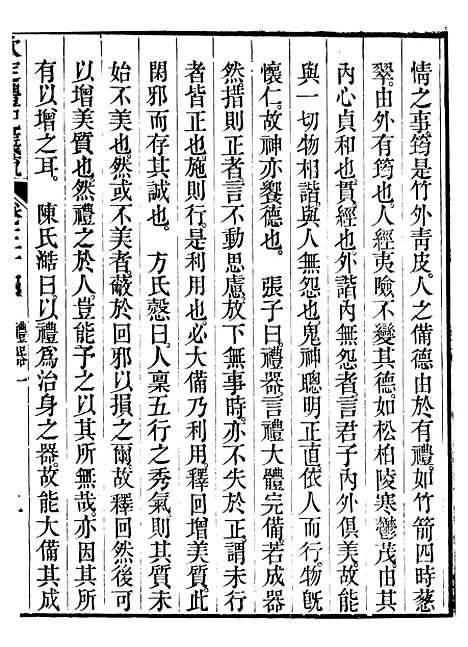 情之事筠是竹外靑皮人之備德由於有禮如竹箭四時葱
翠由外有筠也人經夷險不變其德如松柏陵寒鬱茂由其
內心貞和也貫經也外諧內無怨者言君子內外俱美故能
與一切物相諧與人無怨也鬼神聰明正直依人而行物旣
懷仁故神亦饗德也　張子曰禮器言禮大體完備若成器
然措則正者言不動思慮放下無事時亦不失於正謂未行
者皆正也施則行是利用也必大備乃利用釋回增美質此
閑邪而存其誠也　方氏慤曰人稟五行之秀氣則其質未
始不美也然或不美者蔽於回邪以損之爾故釋回然後可
以增美質也然禮之於人豈能予之以其所無哉亦因其所
有以增之耳　陳氏澔曰以禮爲治身之器故能大備其成
欽定禮記義疏　卷三十　禮器一